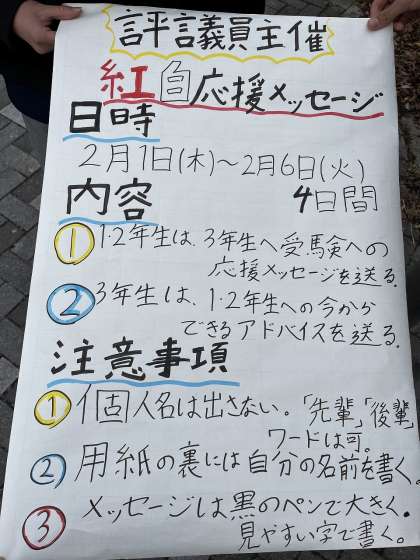 評議員主催
紅白応援メッセージ
日時
2月1日(木)～2月6日(火)
内容 4日間
① 1・2年生は、3年生へ受験への
応援メッセージを送る。
② 3年生は、1・2年生への今から
できるアドバイスを送る。
注意事項
① 個人名は出さない。「先輩」「後輩」
ワードは可。
② 用紙の裏には自分の名前を書く。
③ メッセージは黒のペンで大きく。
見やすい字で書く。